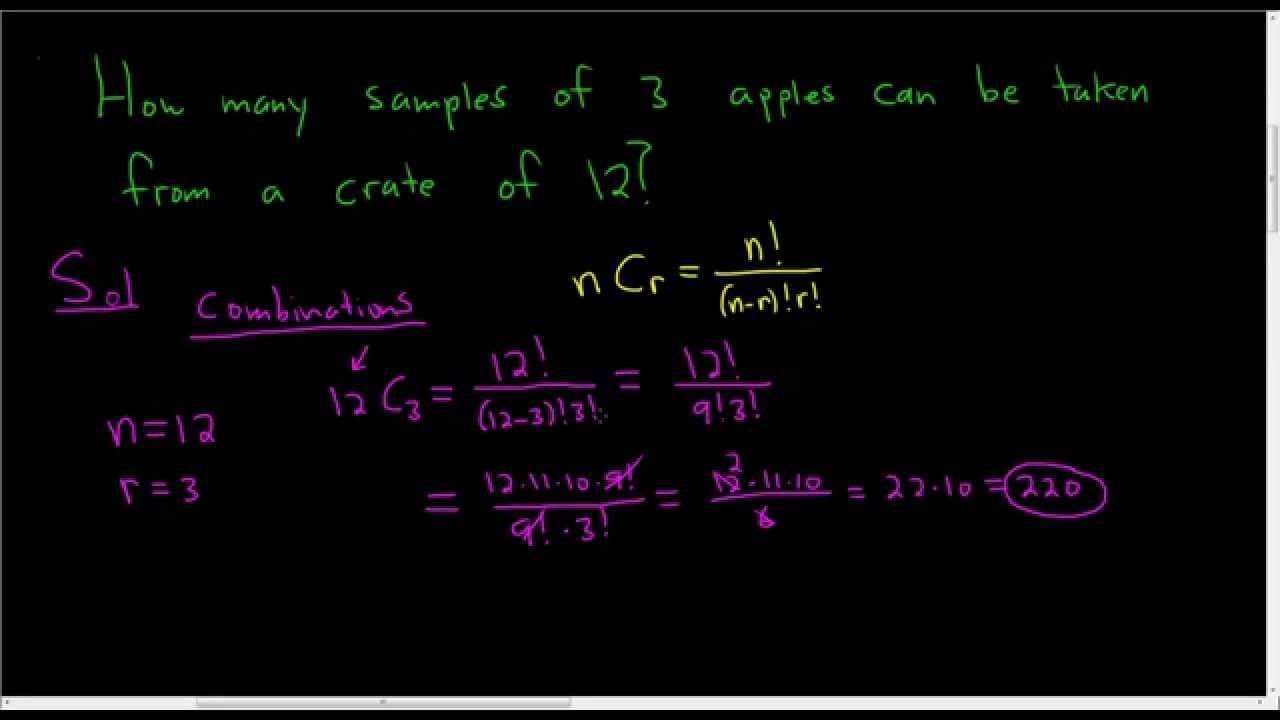 How many samples of 3 apples can be taken
from a crate of 12?
Sol
Combinations
nCr = n!/(n-r)!r!
n=12
r=3
12C3 = 12!/(12-3)!3! = 12!/9!3!
= 12·11·10·9!/9!·3! = 12·11·10/6 = 22·10 = 220
2